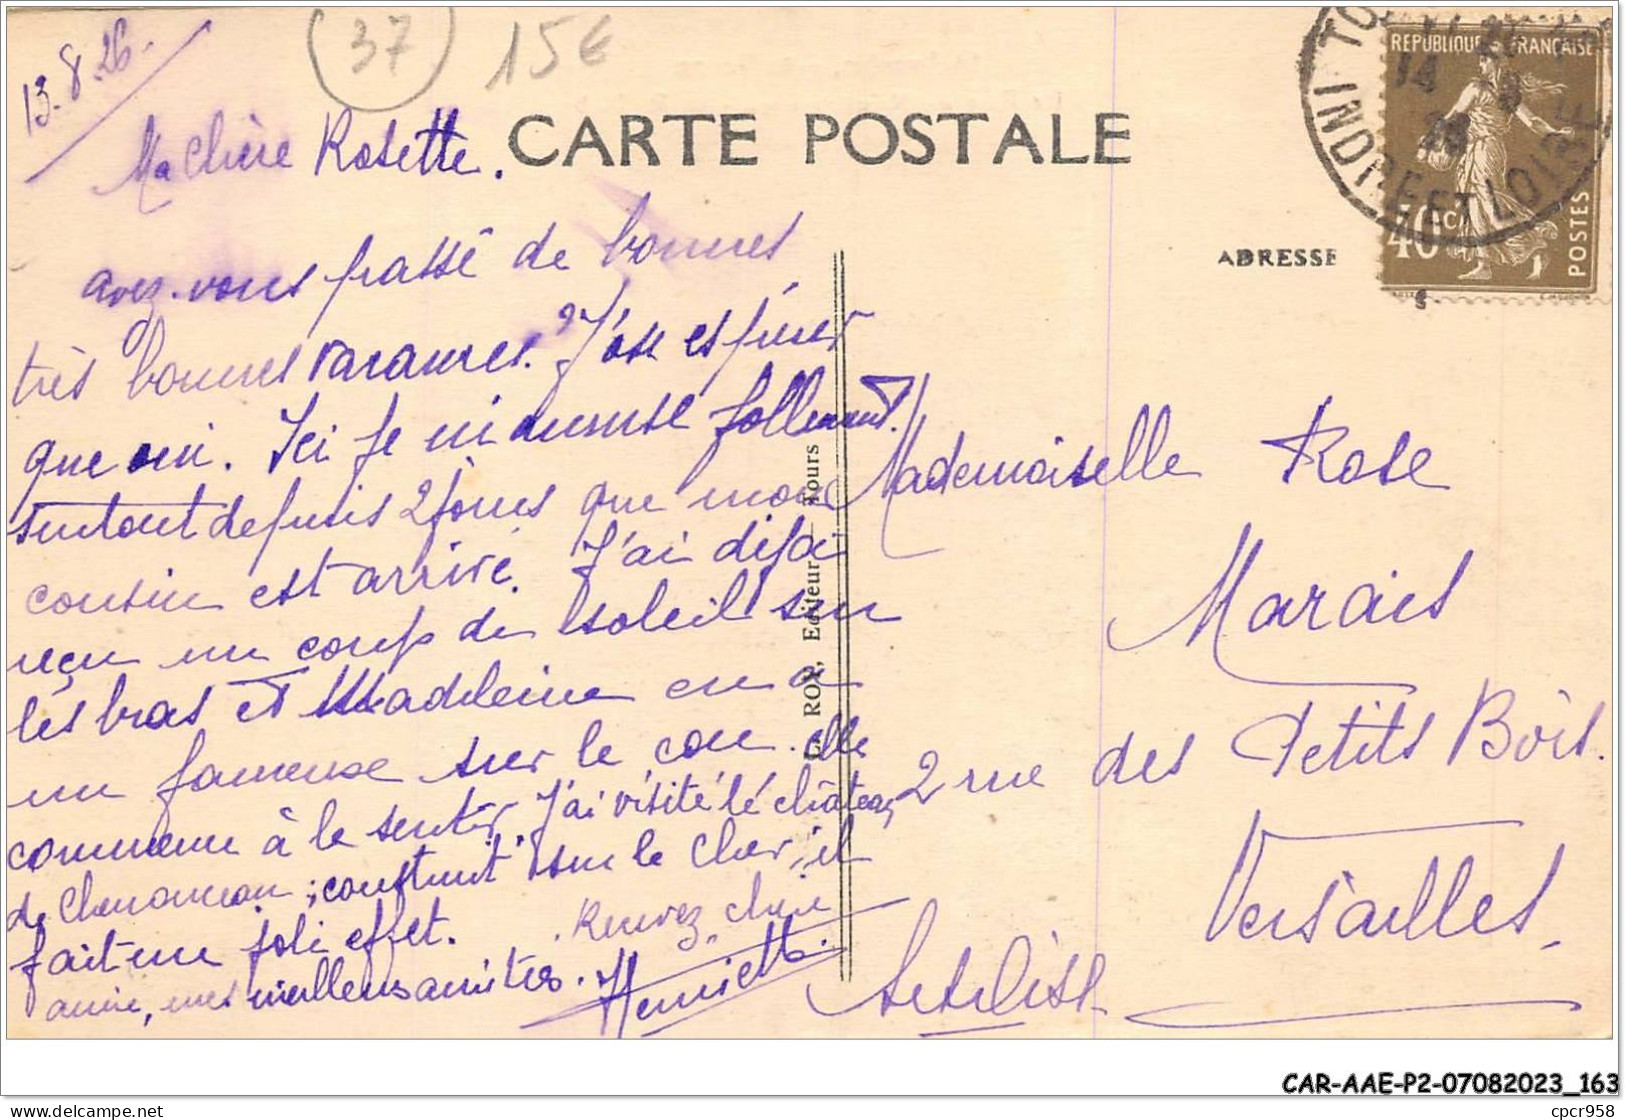 13-8-26-
37
15€
CARTE POSTALE
Ma Chère Rosette.
avez-vous passé de bonnes
très bonnes vacances ? J'ose espérer
que oui. Ici je m'amuse follement.
surtout depuis 2 jours que mon
cousin est arrivé. J'ai déjà
reçu un coup de soleil sur
les bras et Madeleine en a
un fameux sur le cou. elle
commence à le sentir. J'ai visité le château
de Chenonceau ; construit sur le Cher, il
fait un joli effet. Recevez, chère
amie, mes meilleurs amitiés. Henriette.
ADRESSE
REPUBLIQUE FRANÇAISE
40c
POSTES
14
TO
INDRE-ET-LOIRE
Mademoiselle Rose
Marais
2 rue des Petits Bois.
Versailles.
Seine-et-Oise
ROY, Editeur - Tours
CAR-AAE-P2-07082023_163
www.delcampe.net
cpcr958